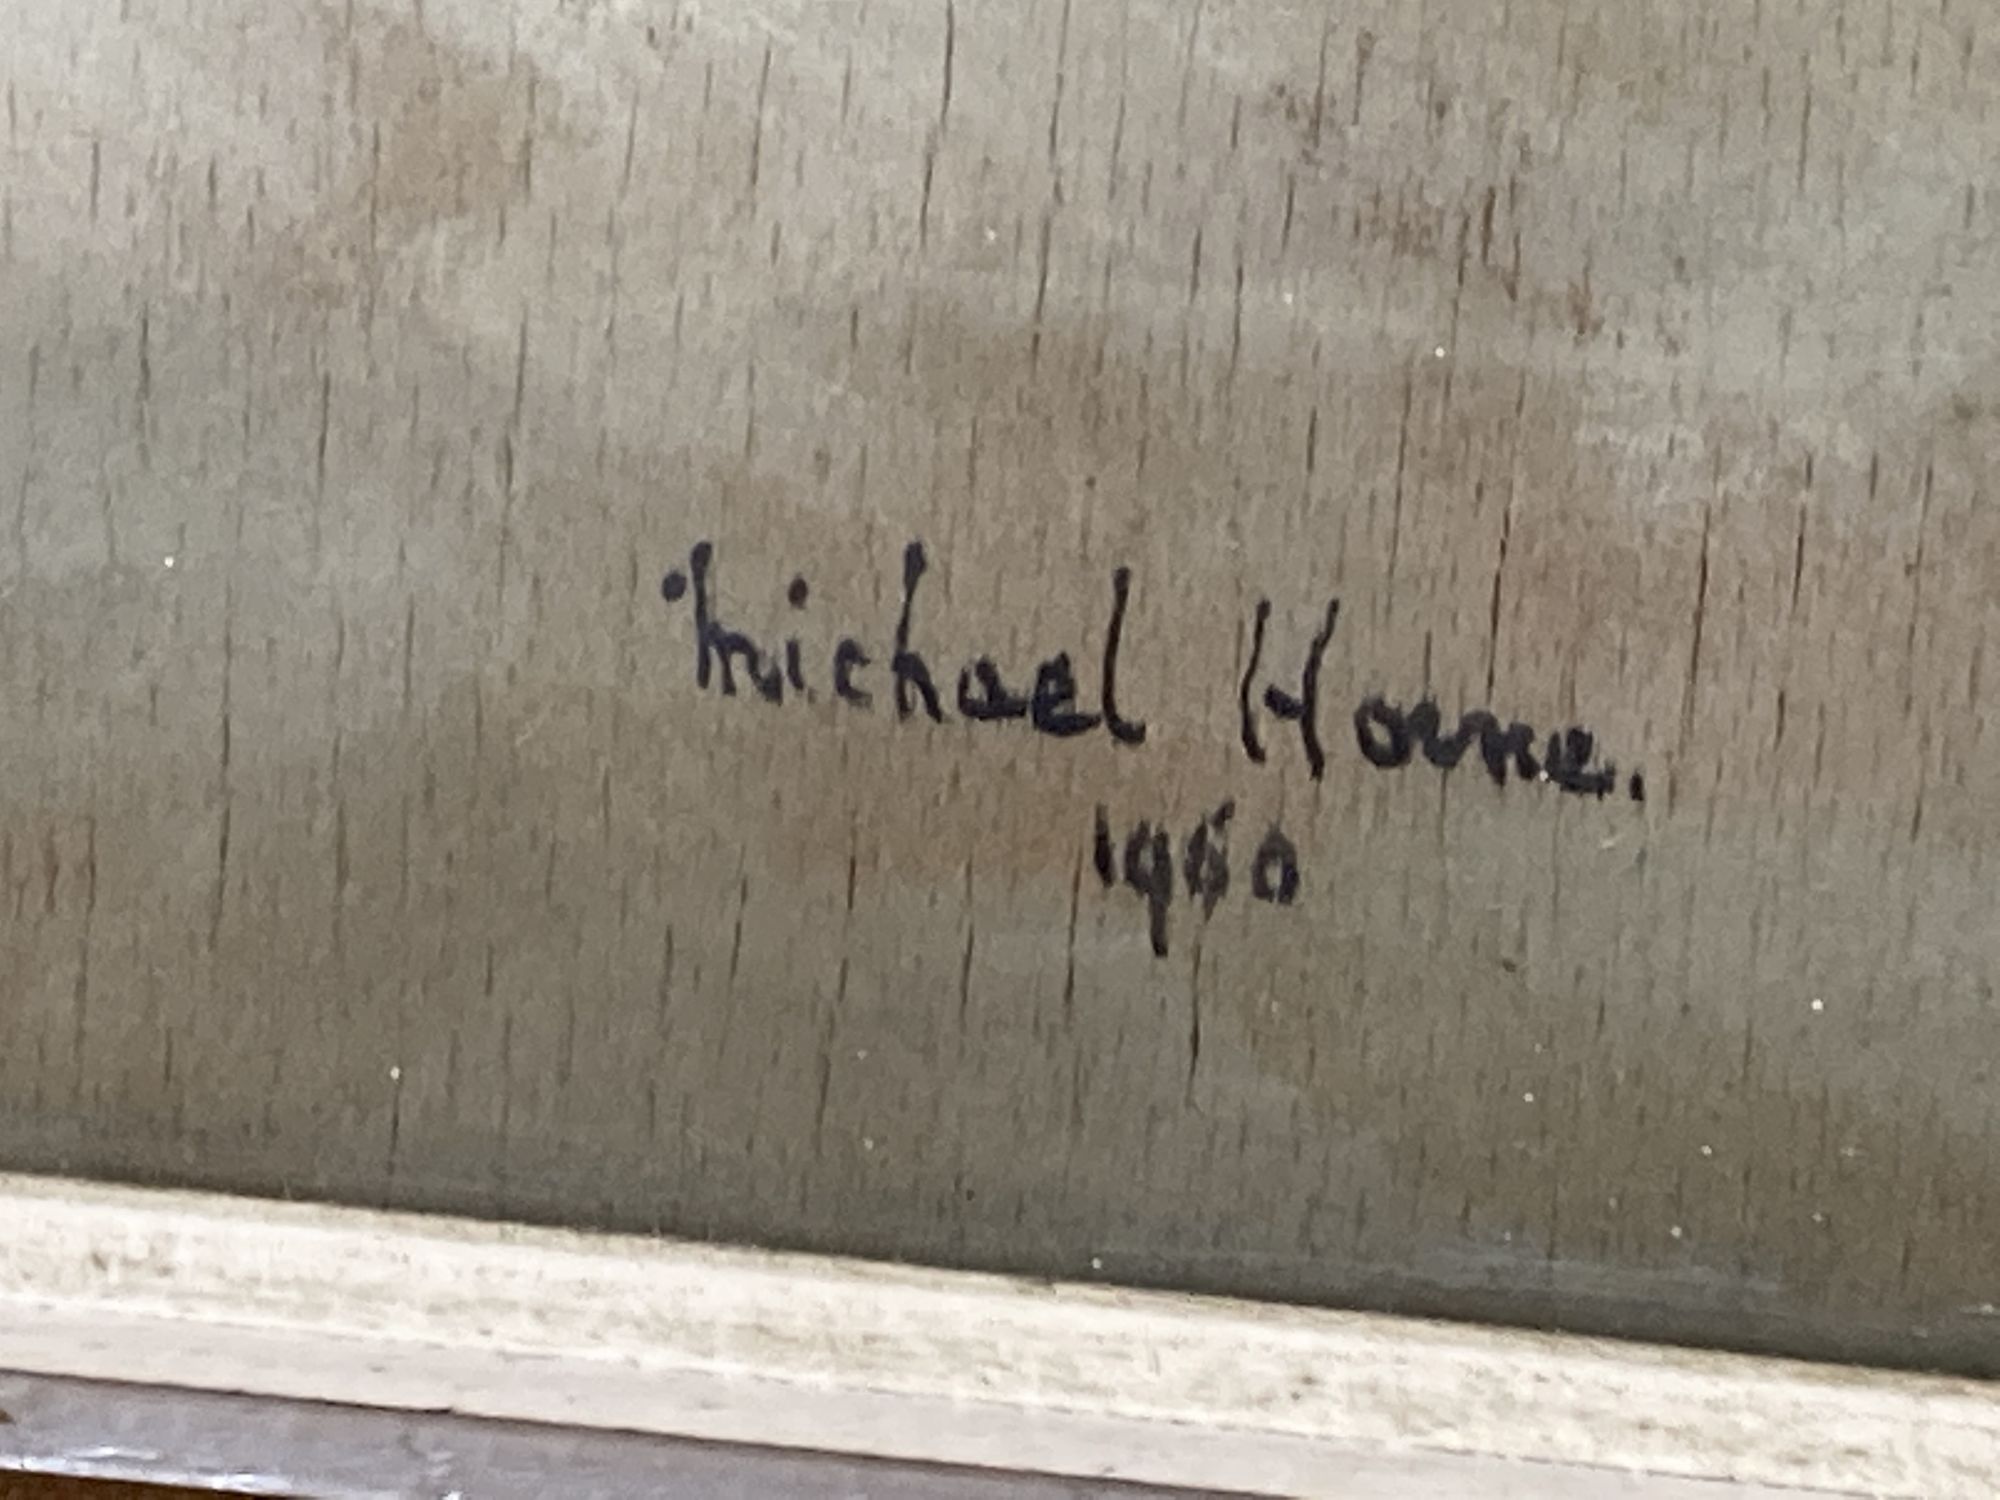 Michael Horne.
1960